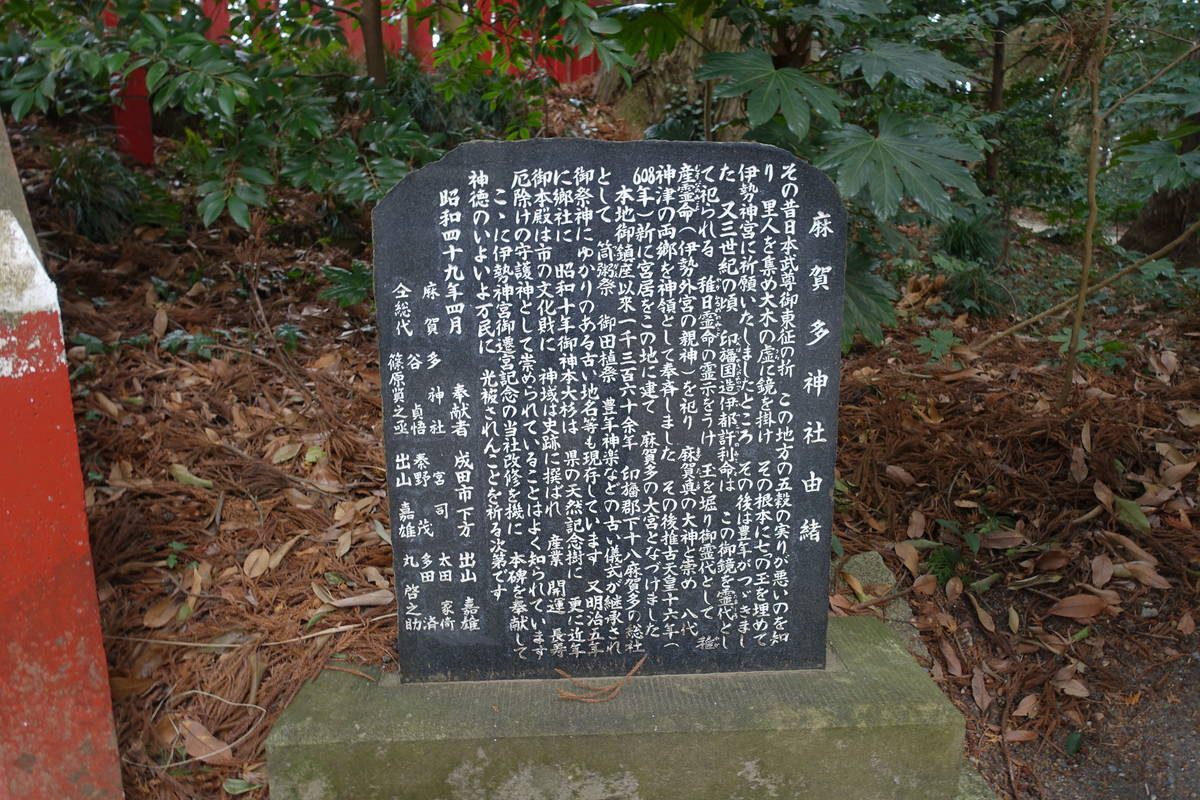 麻賀多神社由緒
その昔日本武尊御東征の折 この地方の五穀の実りが悪いのを知
り 里人を集め大木の虚に鏡を掛け その根本に七の玉を埋めて
伊勢神宮に祈願いたしましたところ その後は豊年がつゞきまし
た 又三世紀の頃 印旛国造伊都許利命は この御鏡を霊代とし
て祀られる 稚日霊命の霊示をうけ 玉を堀り御霊代として 稚
産霊命(伊勢外宮の親神)を祀り 麻賀真の大神と崇め 八代
神津の両郷を神領として奉斉しました その後推古天皇十六年(
608年)新に宮居をこの地に建て 麻賀多の大宮となづけました
本地御鎮座以來一千三百六十余年 印旛郡下十八麻賀多の総社
として 筒粥祭 御田植祭 豊年神楽などの古い儀式が継承され
御祭神にゆかりのある古い地名等も現存しています 又明治五年
に郷社に 昭和十年御神本大杉は 県の天然記念樹に 更に近年
御本殿は市の文化財に 神域は史跡に撰ばれ 産業 開運 長寿
厄除けの守護神として崇められていることはよく知られています
こゝに伊勢神宮御遷宮記念の当社改修を機に 本碑を奉献して
神徳のいよいよ万民に 光被されんことを祈る次第です
昭和四十九年四月
奉献者 成田市下方 出山 嘉雄
麻賀多神社 宮司 太田 家衛
仝総代 谷 貞悟 秦野 茂 多田 済
篠原貢之丞 出山 嘉雄 丸 啓之助